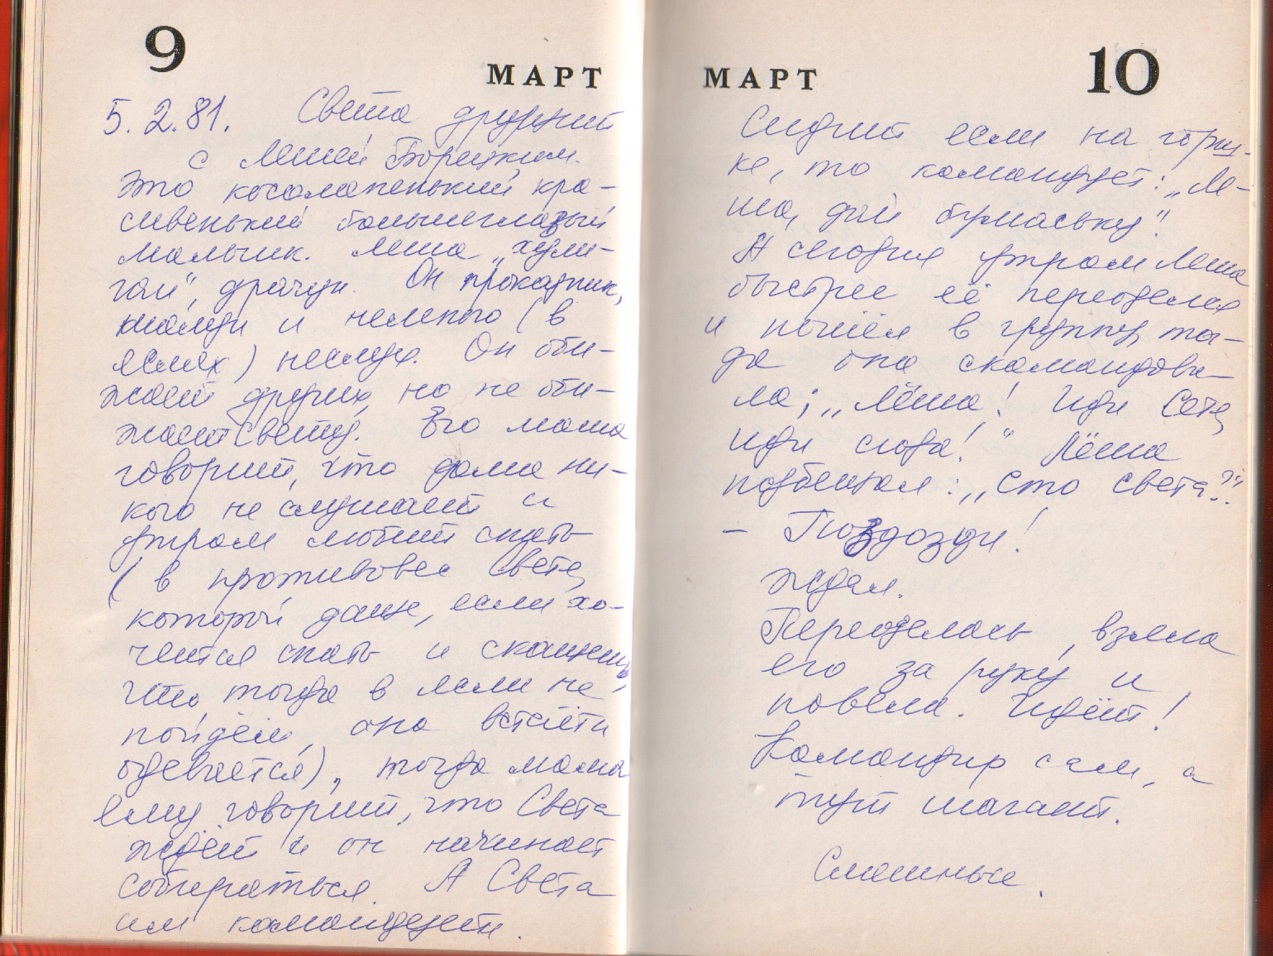 9
МАРТ
5.2.81. Света дружит
с Лёшей Борецким.
Это косолапенький кра-
сивенький большеглазый
мальчик. Лёша „хули-
ган", драчун. Он проказник,
шалун и немного (в
яслях) неслух. Он оби-
жает других, но не оби-
жает Свету. Его мама
говорит, что дома ни-
кого не слушает и
утром любит спать
(в противовес Свете,
которой даже, если хо-
чется спать и скажешь,
что тогда в ясли не
пойдём, она встаёт и
одевается), тогда мама
ему говорит, что Света
ждёт и он начинает
собираться. А Света
им командует.
МАРТ
10
Сидит если на горш-
ке, то командует: „Лё-
ша, дай бумаську".
А сегодня утром Лёша
быстрее её переоделся
и пошёл в группу, то-
да она скомандова-
ла; „Лёша! Иди Сете,
иди сюда!" Лёша
подбежал: „Сто Света?"
– Поздозди!
Ждал.
Переоделась, взяла
его за руку и
повела. Идёт!
Командир сам, а
тут шагает.
Смешные.